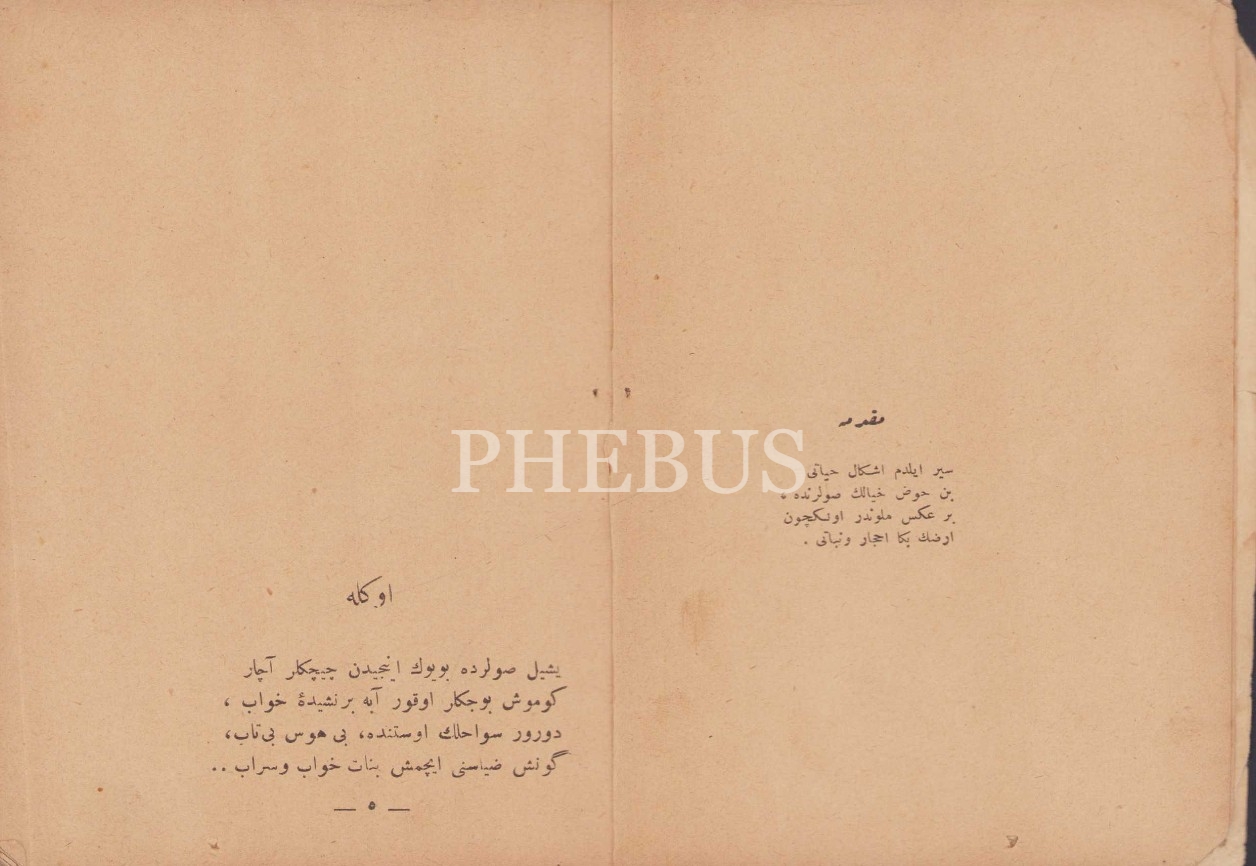 مقدمه
سير ايلدم اشكال حياتی
بن حوض خيالك صولرنده ،
بر عكس ملوندر اونكچون
ارضك بكا احجار ونباتی .
PHEBUS
اوكله
يشيل صولرده بويوك اينجيدن چيچكلر آچار
كوموش بوجكلر اوقور آبه بر نشيدۀ خواب ،
دورور سواحلك اوستنده، بی هوس بی تاب،
گونش ضياسنی ايچمش بنات خواب وسراب ..
— ٥ —